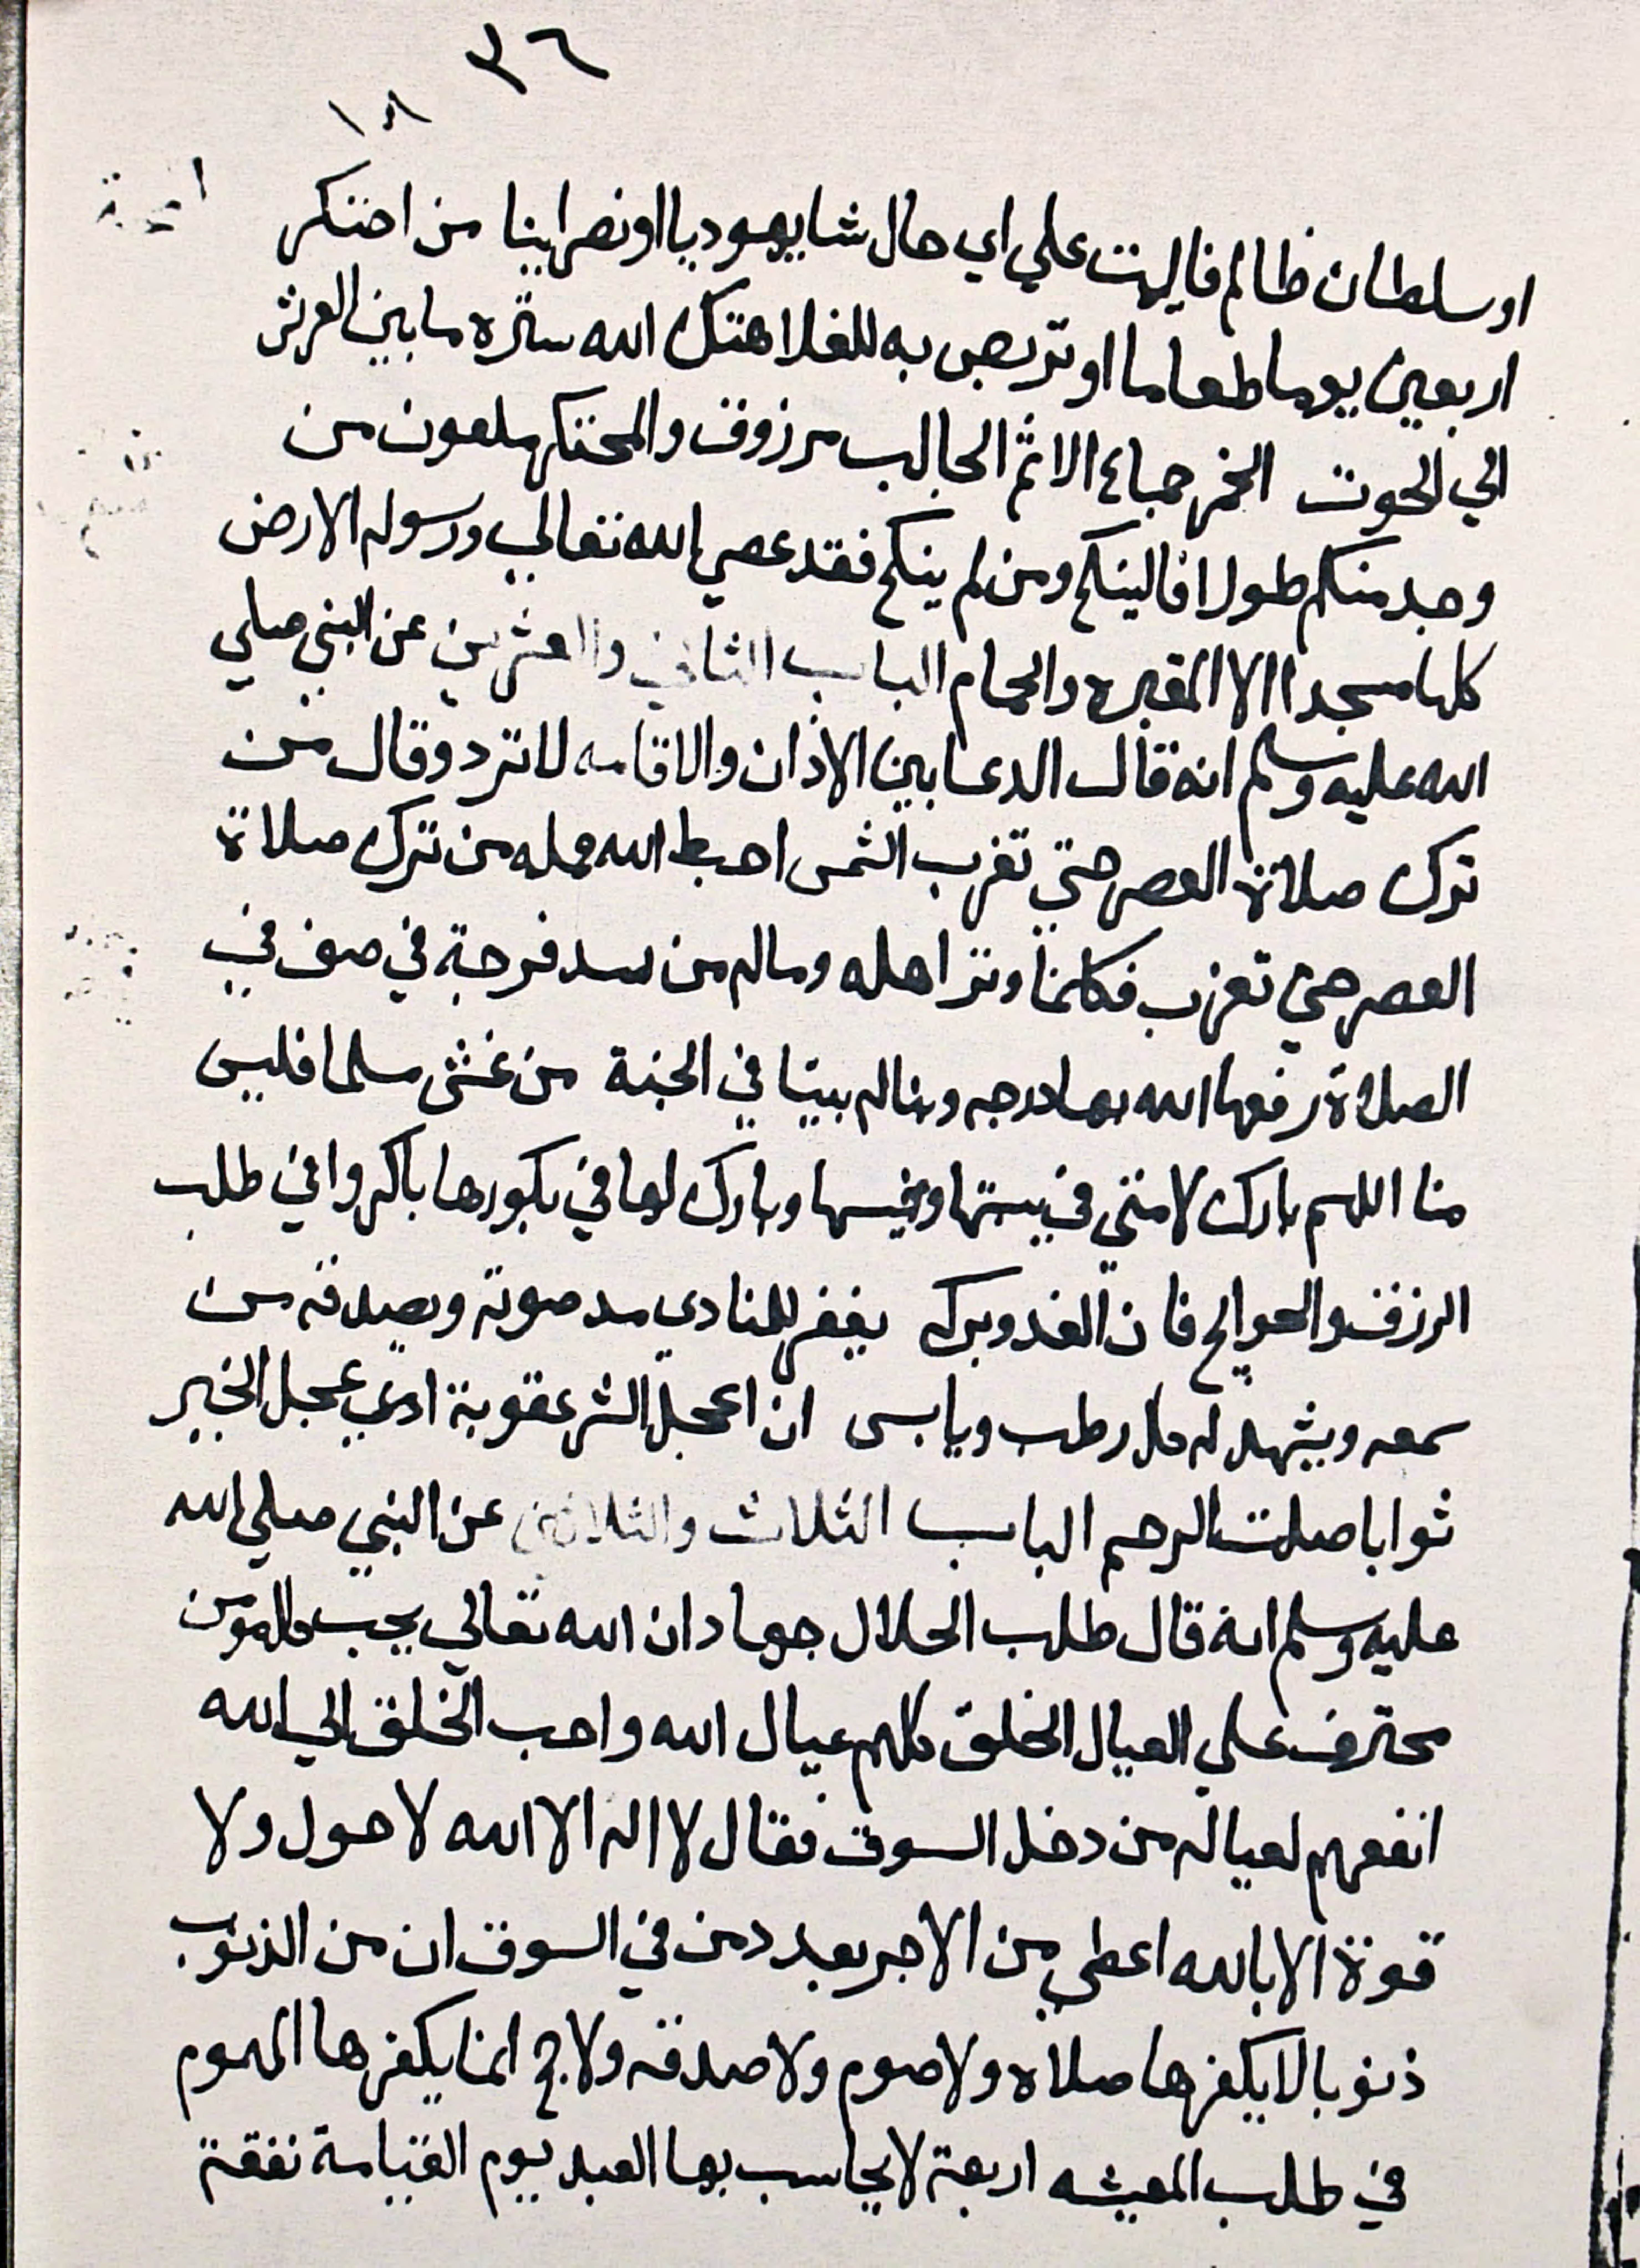 ٣٦
١٨
او سلطان ظالم فاليمت علي اي حال شا يهوديا او نصرانيا من احتكر
اربعين يوما طعاما او تربص به للغلا هتك الله ستره ما بين العرش
الي الحوت الخمر جماع الاثم الجالب مرزوق والمحتكر ملعون من
وجد منكم طولا فالينكح ومن لم ينكح فقد عصي الله تعالي ورسوله الارض
كلها مسجدا الا المقبره والحمام الباب الثاني والعشرين عن النبي صلي
الله عليه وسلم انه قال الدعا بين الاذان والاقامه لا ترد وقال من
ترك صلاة العصر حتي تغرب الشمس احبط الله عمله من ترك صلاة
العصر حتي تغرب فكانما وتر اهله وماله من سد فرجة في صف في
الصلاة رفعها الله بها درجه وبنا له بيتا في الجنة من غش مسلما فليس
منا اللهم بارك لامتي في سبتها وخميسها وبارك لها في بكورها باكروا في طلب
الرزق والحوايج فان الغدو بركه يغفر للمنادي مد صوته ويصدقه من
سمعه ويشهد له كل رطب ويابس ان اعجل الشر عقوبة اوي عجل الخير
ثوابا صلت الرحم الباب الثلاث والثلاثين عن النبي صلي الله
عليه وسلم انه قال طلب الحلال جهاد ان الله تعالي يحب كل مومن
محترف علي العيال الخلق كلهم عيال الله واحب الخلق الي الله
انفعهم لعياله من دخل السوق فقال لا اله الا الله لا حول ولا
قوة الا بالله اعطي من الاجر بعدد من في السوق ان من الذنوب
ذنوبا لا يكفرها صلاه ولا صوم ولا صدقه ولا حج انما يكفرها الهموم
في طلب المعيشه اربعة لا يحاسب بها العبد يوم القيامة نفقة